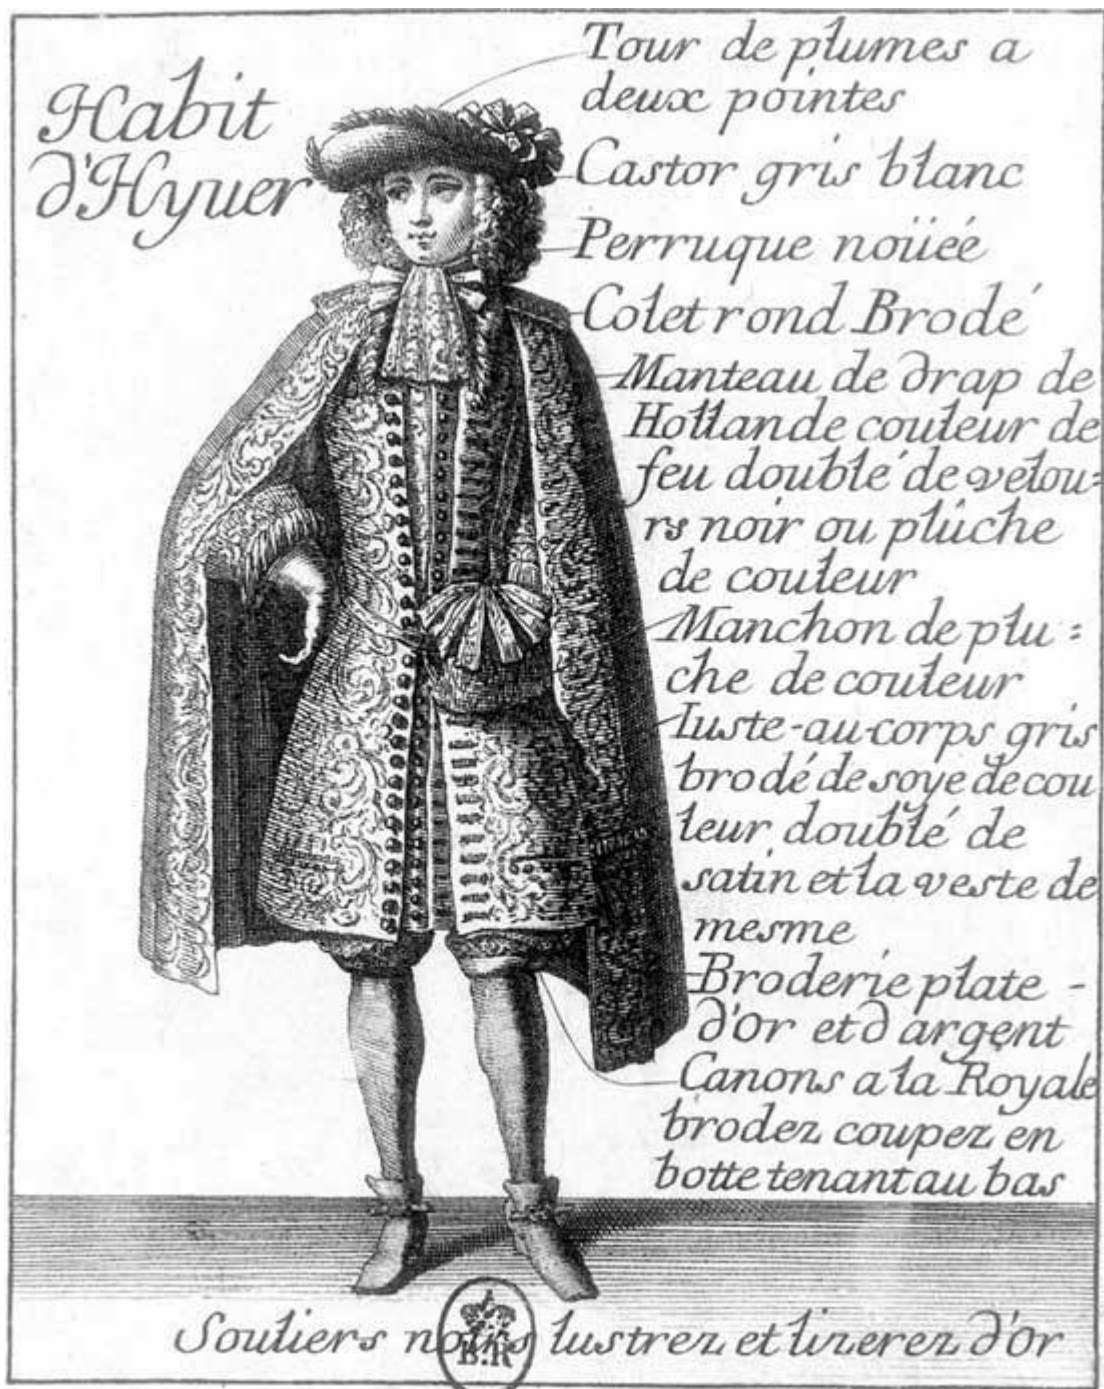 Habit
d'Hyuer
Tour de plumes a
deux pointes
Castor gris blanc
Perruque noüeé
Colet rond Brodé
Manteau de drap de
Hollande couleur de
feu doublé de velou=
rs noir ou plûche
de couleur
Manchon de plu=
che de couleur
Iuste-au-corps gris
brodé de soye de cou
leur doublé de
satin et la veste de
mesme
Broderie plate -
d'Or et d'argent
Canons a la Royale
brodez coupez en
botte tenant au bas
Souliers noirs lustrez et lizerez d'Or
B.R